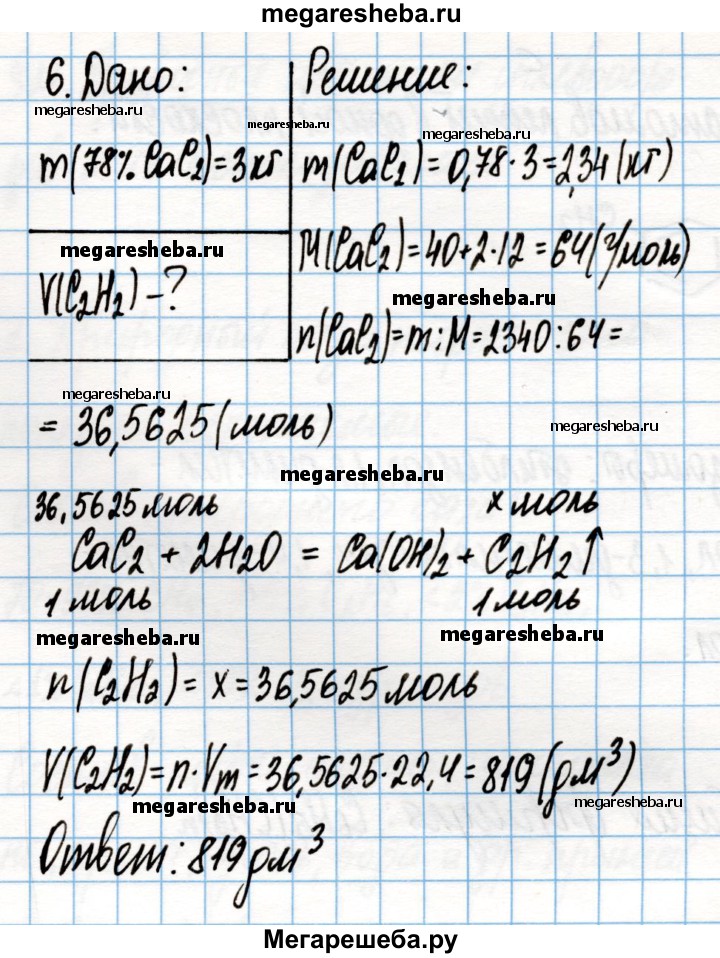 megaresheba.ru
6. Дано:
Решение:
megaresheba.ru
megaresheba.ru
megaresheba.ru
m(78% CaC₂)=3кг
m(CaC₂)=0,78·3=2,34(кг)
megaresheba.ru
M(CaC₂)=40+2·12=64(г/моль)
V(C₂H₂)-?
megaresheba.ru
n(CaC₂)=m:M=2340:64=
megaresheba.ru
=36,5625(моль)
megaresheba.ru
megaresheba.ru
36,5625моль
x моль
CaC₂ + 2H₂O = Ca(OH)₂ + C₂H₂↑
1 моль
1 моль
megaresheba.ru
megaresheba.ru
n(C₂H₂)=x=36,5625моль
V(C₂H₂)=n·Vm=36,5625·22,4=819(дм³)
megaresheba.ru
megaresheba.ru
Ответ: 819дм³
Мегарешеба.ру